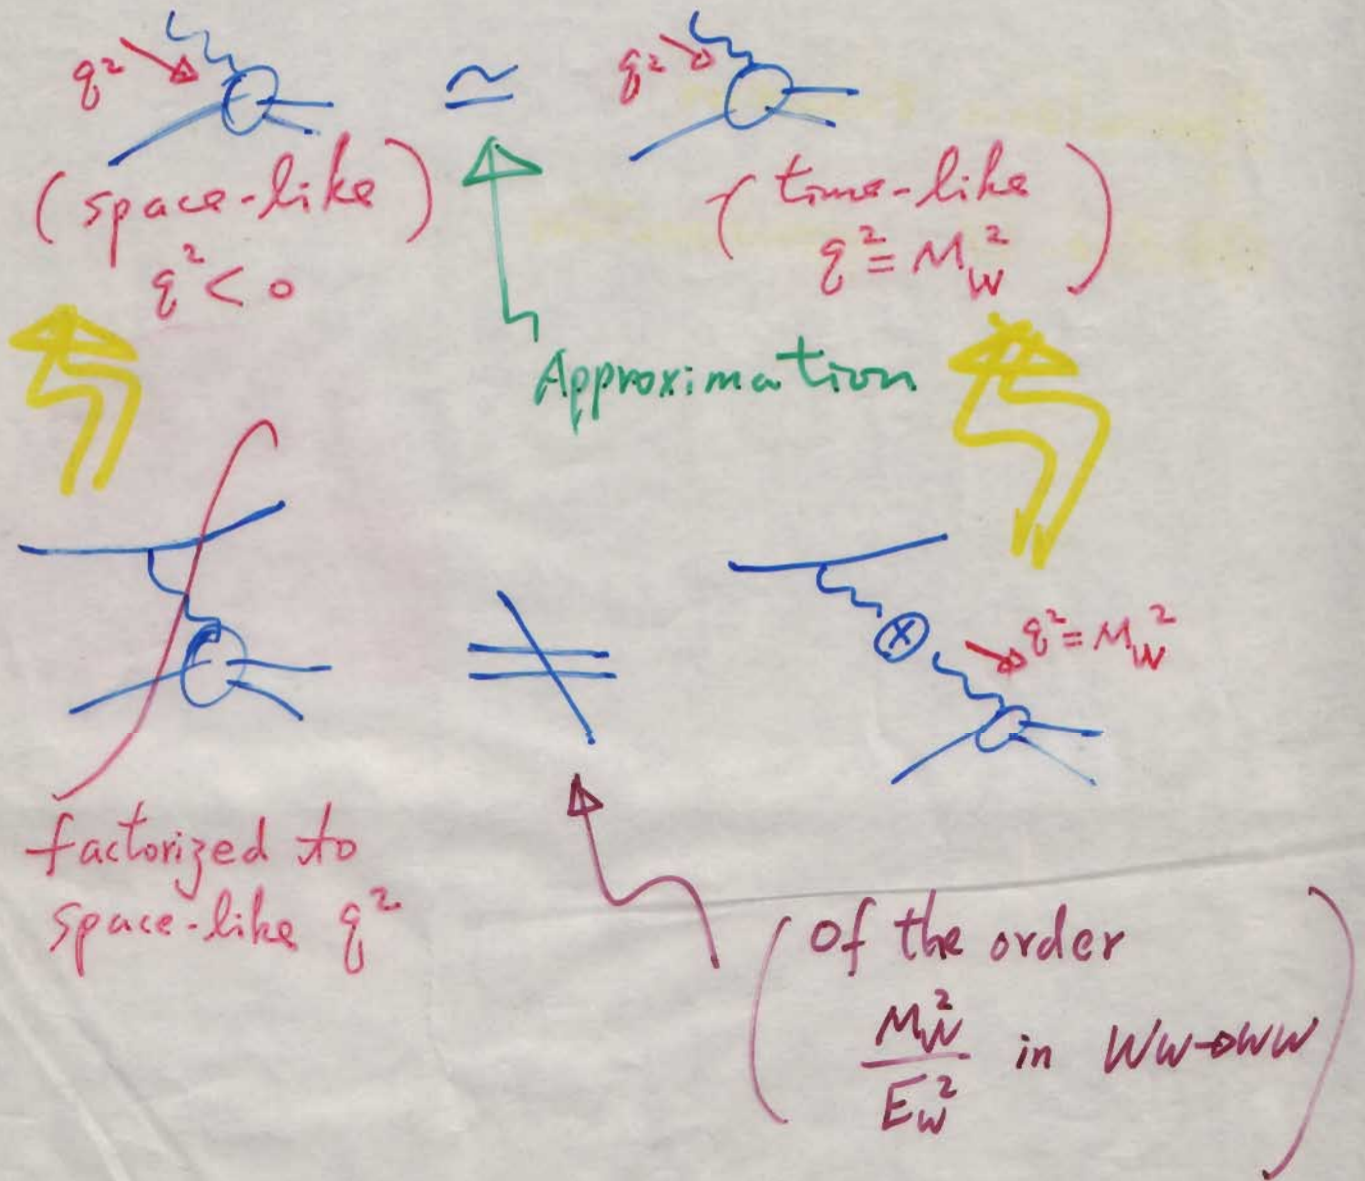 q² ≃ q²
(space-like) (time-like)
q² < 0 q² = M_W²
Approximation
≠ ⊗ q² = M_W²
factorized to
space-like q²
(Of the order
M_W²/E_W² in WW→WW)